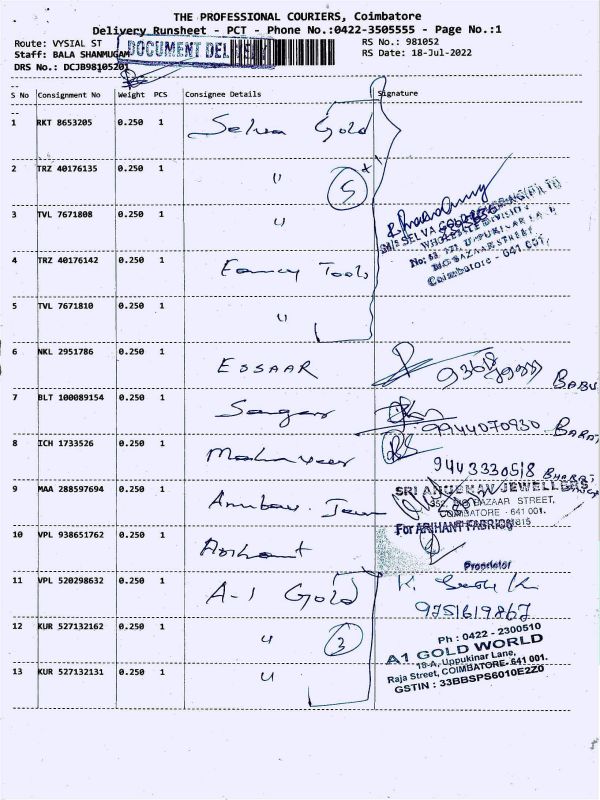 THE PROFESSIONAL COURIERS, Coimbatore
Delivery Runsheet - PCT - Phone No.:0422-3505555 - Page No.:1
Route: VYSIAL ST
RS No.: 981052
Staff: BALA SHANMUGAM
DOCUMENT DEL
RS Date: 18-Jul-2022
DRS No.: DCJB98105201
S No Consignment No Weight PCS Consignee Details Signature
1 RKT 8653205 0.250 1 Selva Gold
2 TRZ 40176135 0.250 1 " 5
3 TVL 7671808 0.250 1 "
M/s SELVA GOLD
WHOLESALE DIVISION
BIG BAZAAR STREET
Coimbatore - 641 001.
4 TRZ 40176142 0.250 1 Fancy Tools
5 TVL 7671810 0.250 1 "
6 NKL 2951786 0.250 1 ESSAAR BABU
7 BLT 100089154 0.250 1 9944070930 BARAT
8 ICH 1733526 0.250 1 Mahaveer
9443330518
9 MAA 288597694 0.250 1
SRI JEWELLERS
BIG BAZAAR STREET,
COIMBATORE - 641 001.
10 VPL 938651762 0.250 1 Arihant
For ARIHANT FABRICS
Proprietor
11 VPL 520298632 0.250 1 A-1 Gold
9751619867
12 KUR 527132162 0.250 1 " 3
Ph : 0422 - 2300510
A1 GOLD WORLD
18-A, Uppukinar Lane,
13 KUR 527132131 0.250 1 "
Raja Street, COIMBATORE-641 001.
GSTIN : 33BBSPS6010E2Z0